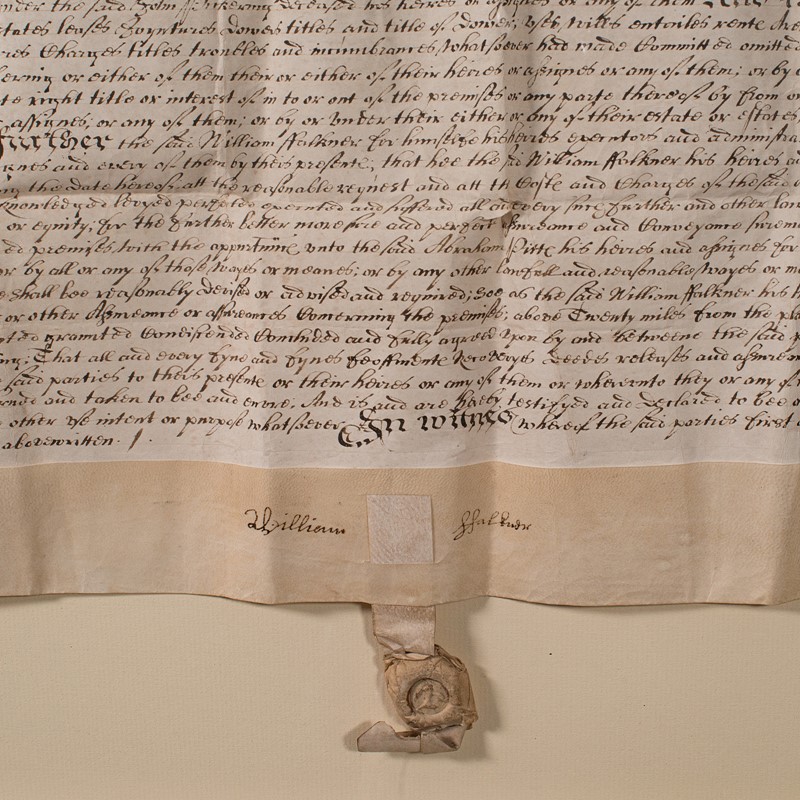 under the said John Pickering deceased his heires or assignes or any of them
states leases Joyntures Dowers titles and title of Dower, Uses Wills entailes rente
Charges titles troubles and incumbrances, whatsoever had made Committed omitted
kering or either of them their or either of their heires or assignes or any of them; or by
right title or interest of in to or out of the premises or any parte thereof by from or
assignes; or any of them; or by or under their either or any of their estate or estates
further the said William ffalkner for himselfe his heires executors and administra
and every of them by theis presente; that hee the sd William ffalkner his heires
the date hereof att the reasonable request and att the Coste and Charges of the said
knowledged levyed perfected executed and suffered all and every such further and other
or equity; for the further better more sure and perfect Assureance and Conveyance
ed premises, with the appurtunne unto the said Abraham Pitte his heires and assignes for
or by all or any of those, wayes or meanes; or by any other lawfull and reasonable wayes or
shall bee reasonably devised or advised and required; Soe as the said William ffalkner his
or other Assureance or assureances Concerning the premiss; above Twenty miles from the
granted Condiscended Concluded and fully agreed upon by and betweene the said
That all and every fyne and fynes feoffmente Recoverys Deedes releases and assurean
said parties to theis presente or their heires or any of them or whereunto they or any of
and taken to bee and enure, And is and are hereby testifyed and Declared to bee
other use intent or purpose whatsoever In witnes whereof the said parties first
abovewritten.
William ffalkner